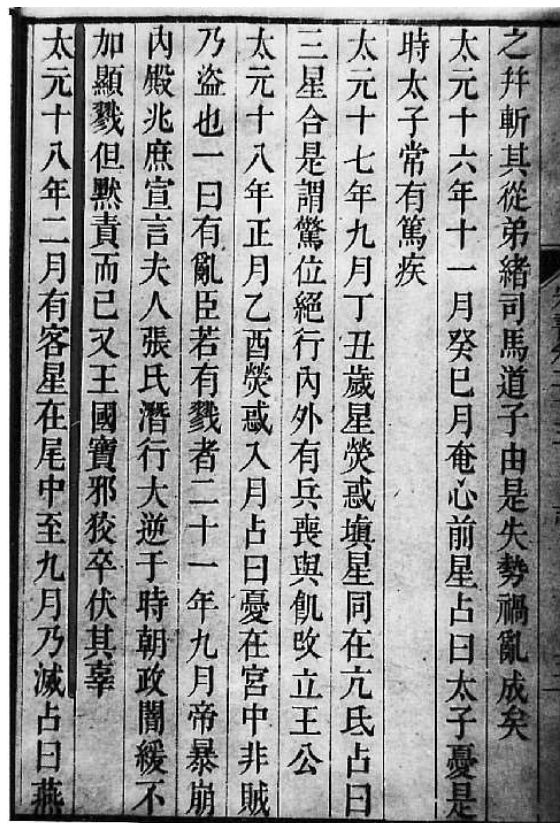 之幷斬其從弟緒司馬道子由是失勢禍亂成矣
太元十六年十一月癸巳月奄心前星占曰太子憂是
時太子常有篤疾
太元十七年九月丁丑歲星熒惑塡星同在亢氐占曰
三星合是謂驚位絕行內外有兵喪與飢改立王公
太元十八年正月乙酉熒惑入月占曰憂在宮中非賊
乃盜也一曰有亂臣若有戮者二十一年九月帝暴崩
內殿兆庶宣言夫人張氏潛行大逆于時朝政闇緩不
加顯戮但默責而已又王國寶邪狡卒伏其辜
太元十八年二月有客星在尾中至九月乃滅占曰燕